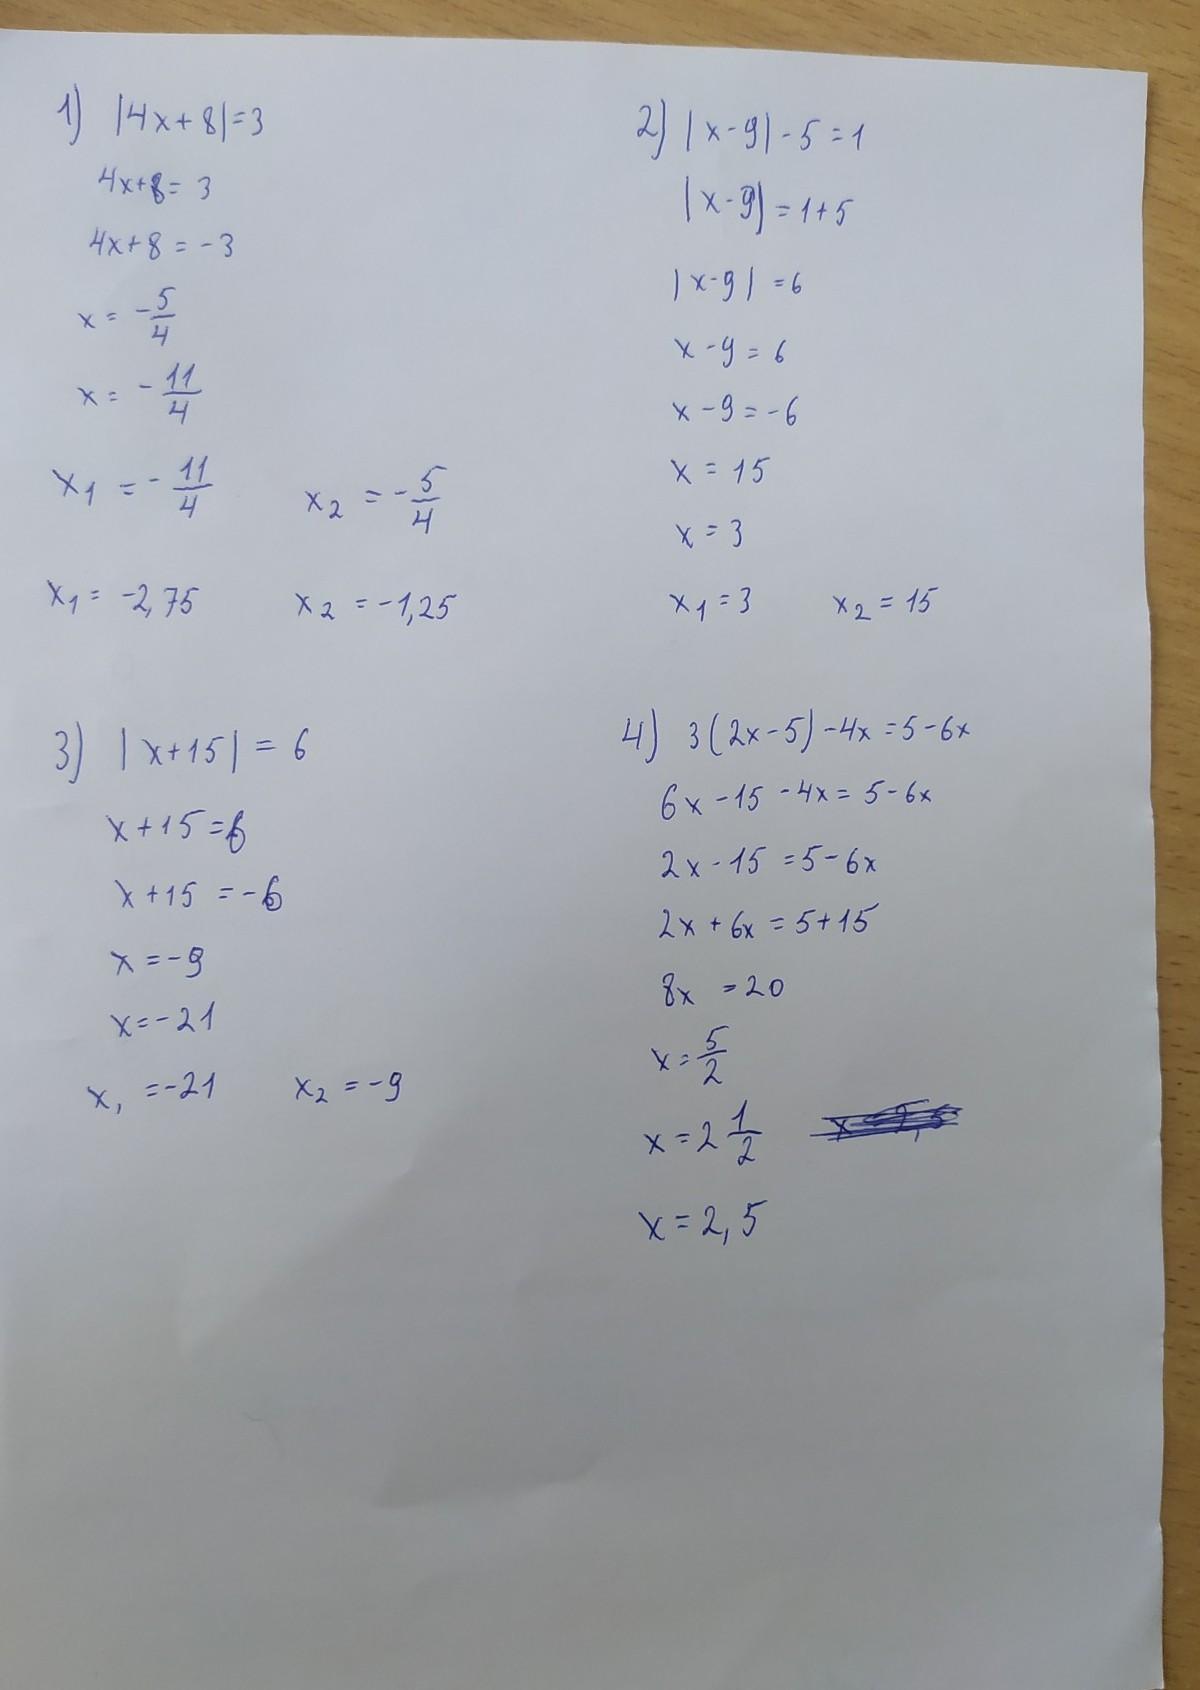 1) |4x+8|=3
4x+8=3
4x+8=-3
x=-5/4
x=-11/4
x₁=-11/4 x₂=-5/4
x₁=-2,75 x₂=-1,25
2) |x-9|-5=1
|x-9|=1+5
|x-9|=6
x-9=6
x-9=-6
x=15
x=3
x₁=3 x₂=15
3) |x+15|=6
x+15=6
x+15=-6
x=-9
x=-21
x₁=-21 x₂=-9
4) 3(2x-5)-4x=5-6x
6x-15-4x=5-6x
2x-15=5-6x
2x+6x=5+15
8x=20
x=5/2
x=2 1/2
x=2,5